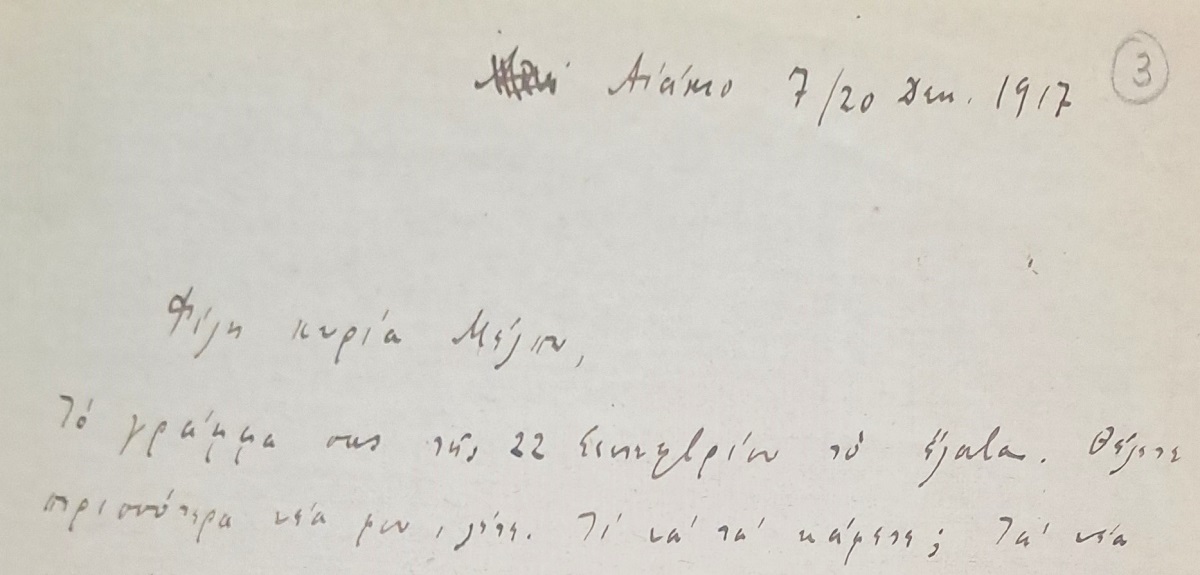 Αἰάκιο 7/20 Δεκ. 1917
3
Φίλη κυρία Μέλπω,
Τὸ γράμμα σας τῆς 22 Σεπτεμβρίου τὸ ἔλαβα. Θέλετε
περισσότερα νέα μου, λέτε. Τί νὰ τὰ κάμετε; Τὰ νέα